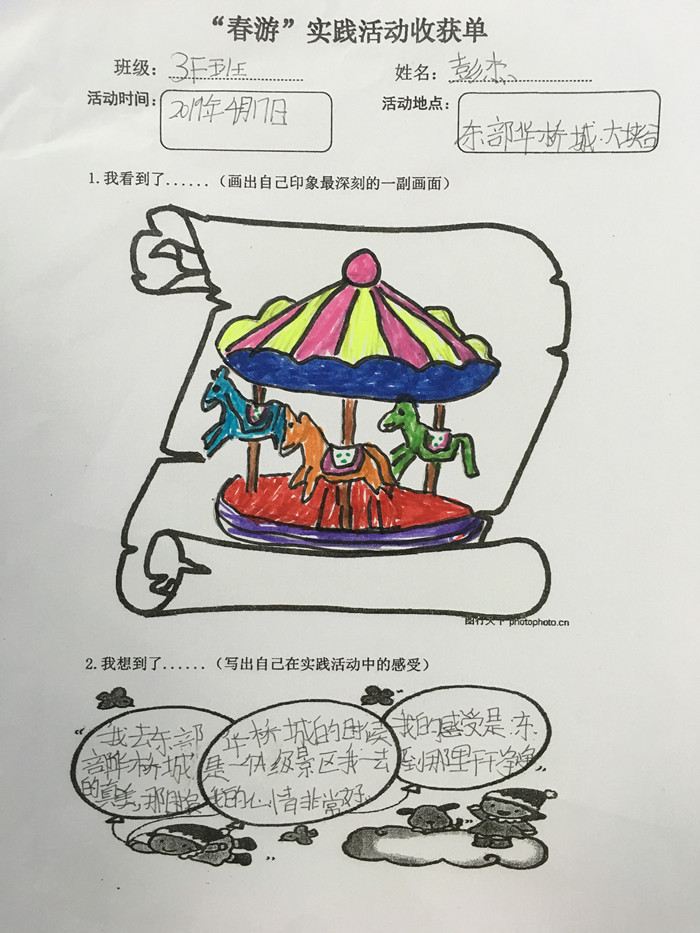 “春游”实践活动收获单
班级: 3年班 姓名: 彭杰
活动时间: 2019年4月17日 活动地点: 东部华桥城·大峡谷
1.我看到了......(画出自己印象最深刻的一副画面)
图行天下 photophoto.cn
2.我想到了......(写出自己在实践活动中的感受)
“我去东部 华桥城的时候 我的感受是:东
部华桥城 是一个A级景区我一去 到那里干干净净”
的真美,那 我的心情非常好